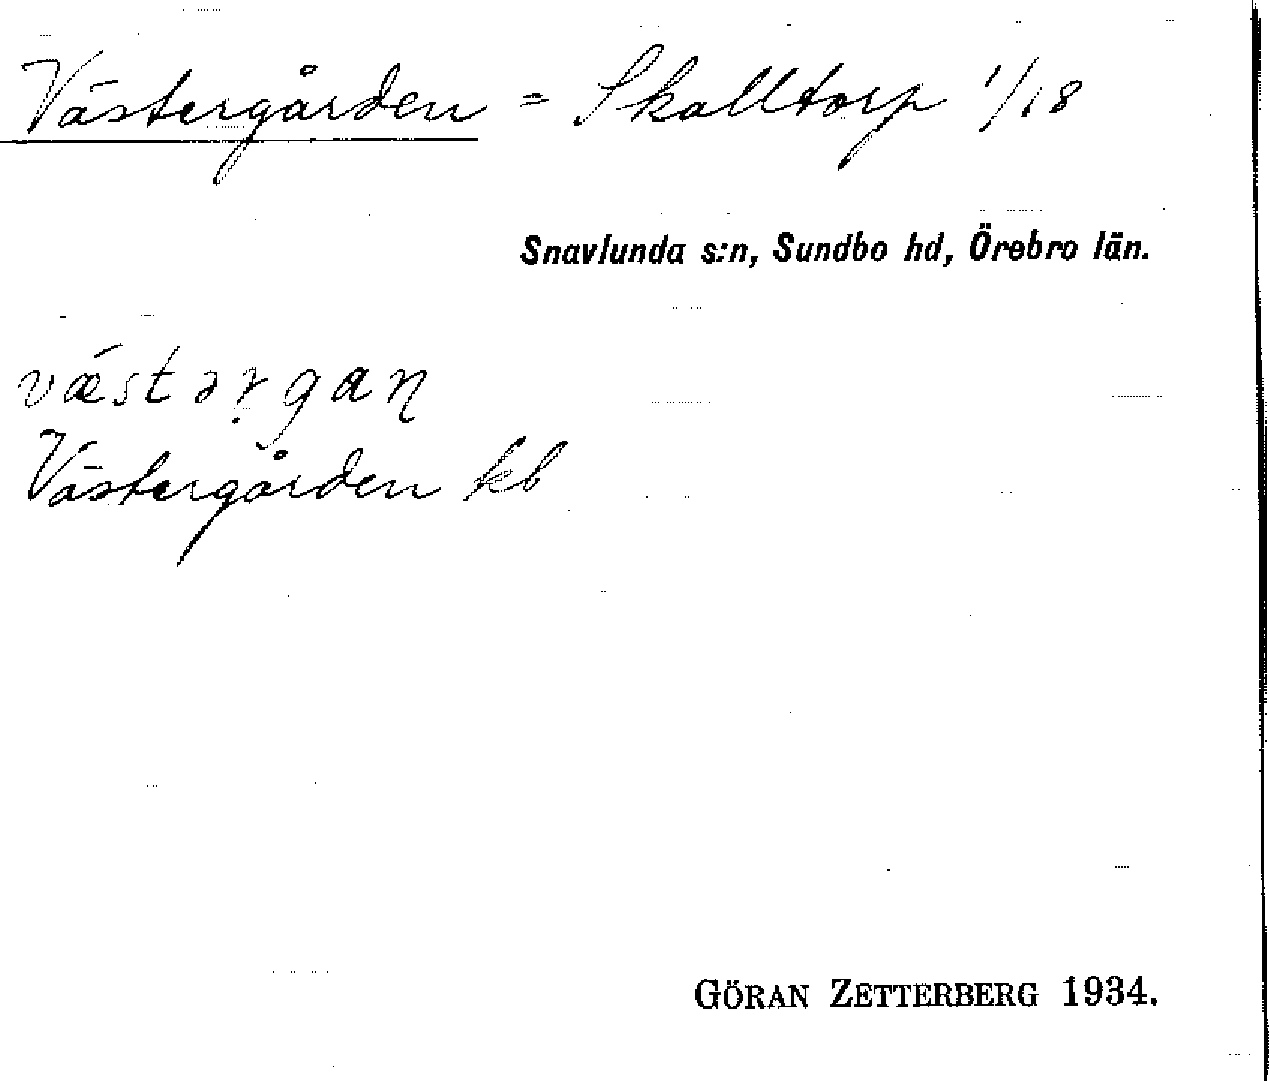 Västergården = Skalltorp 1/18
Snavlunda s:n, Sundbo hd, Örebro län.
vǽstəṛgaɳ
Västergården kb
GÖRAN ZETTERBERG 1934.